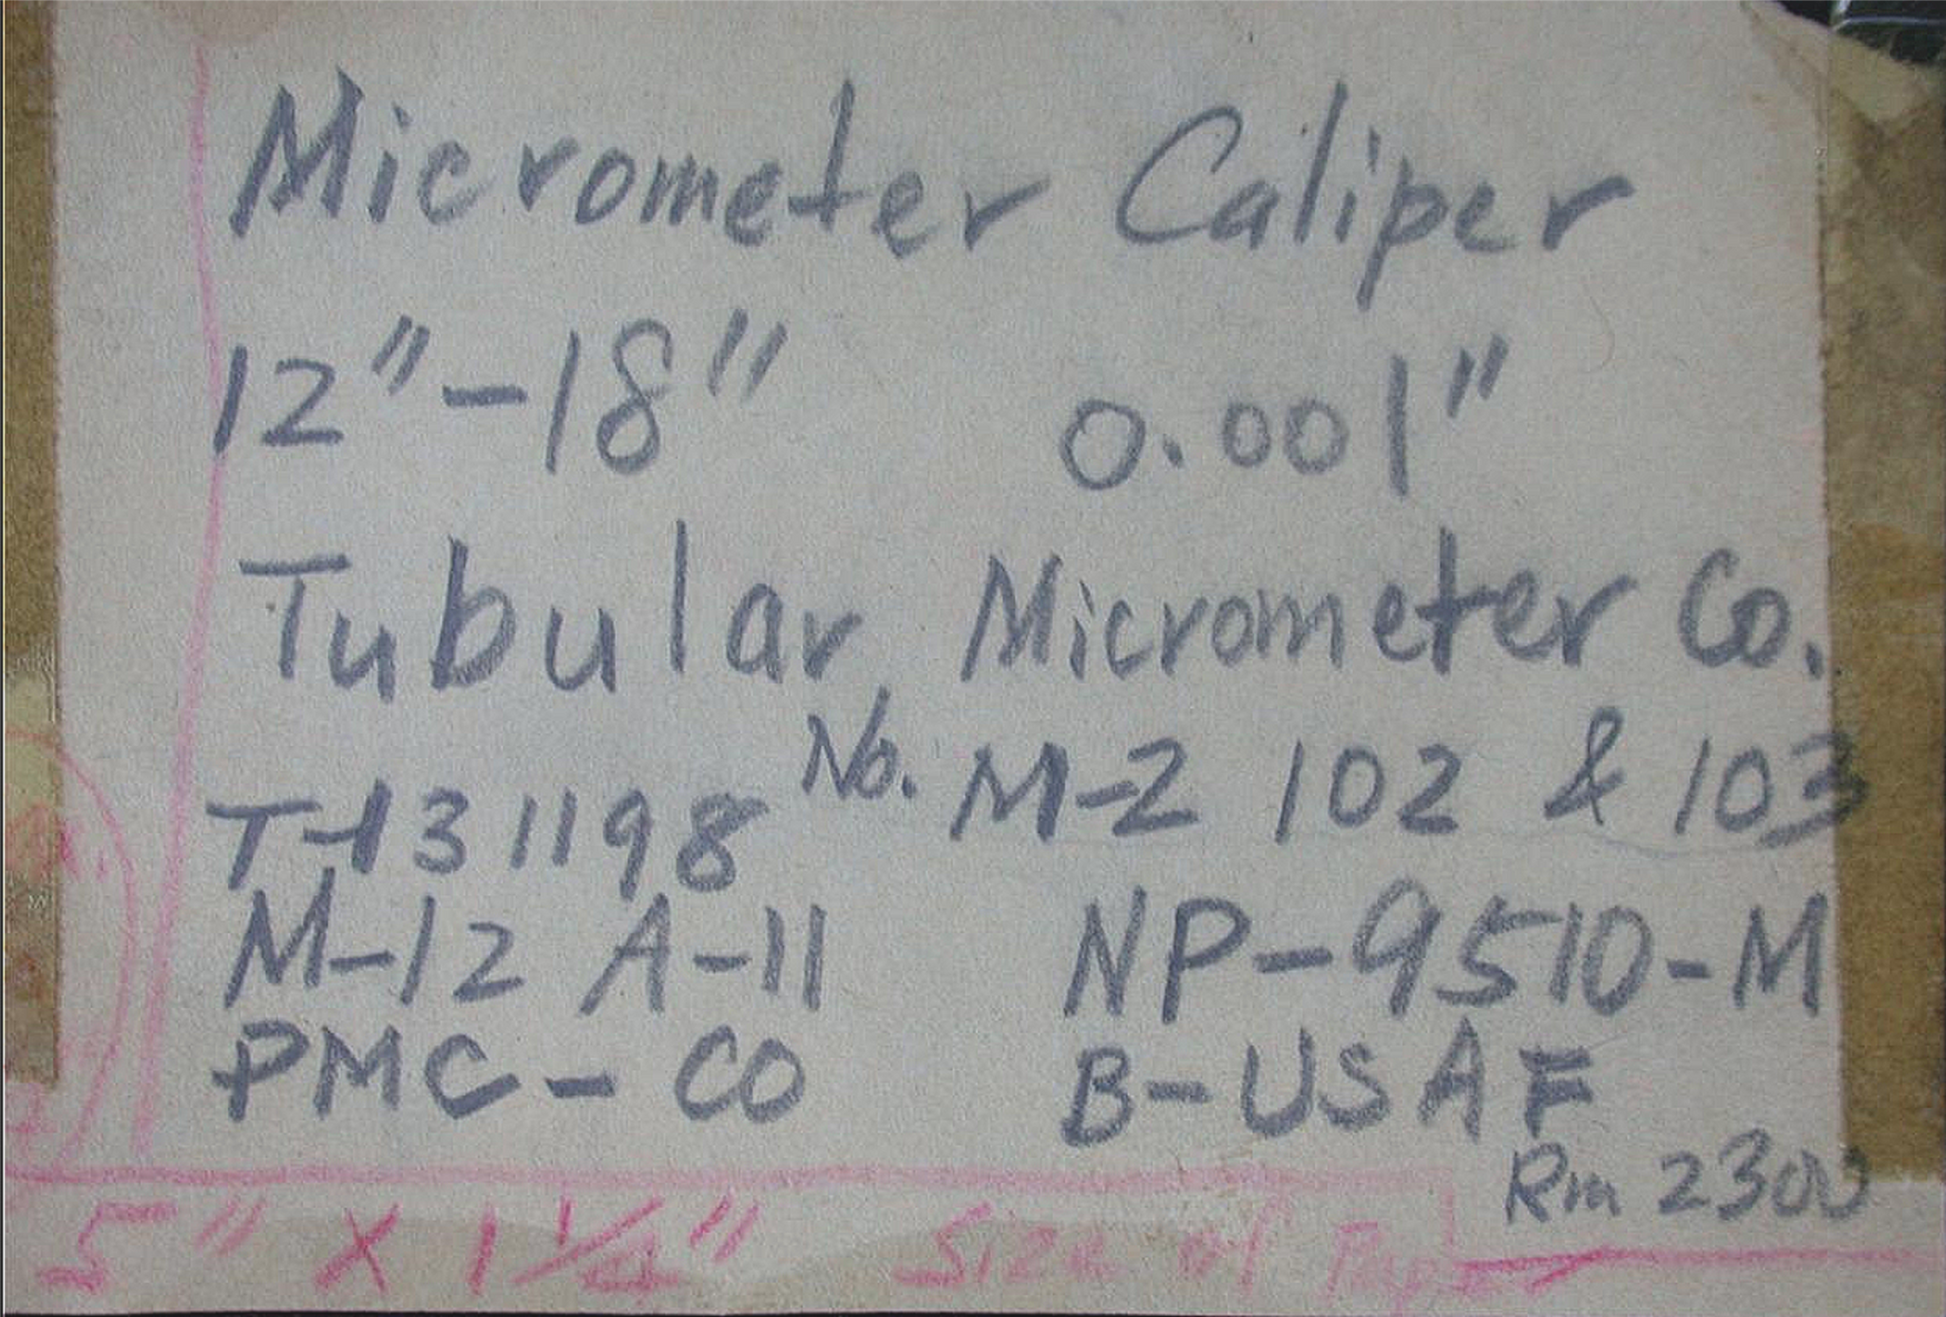 Micrometer Caliper
12"-18" 0.001"
Tubular Micrometer Co.
No. M-2 102 & 103
T-131198
M-12 A-11 NP-9510-M
PMC-CO B-USAF
Rm 2300
5" X 1 1/4" Size of